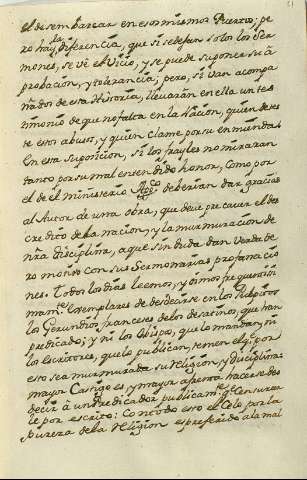 el desembarcar en esos mismos Puertos; pe
ro hay la diferencia, que si se dejan solos los Ser
mones, se vè el Vicio, y se puede suponer su à
probacion, y tolerancia; pero, si van acompa
ñados de esta Historia, llevaràn en ella un tes
timonio de que no falta en la Nacion, quien detes
te esos abusos, y quien clame por su enmienda.
En esta suposicion, si los frayles no miraran
tanto por su mal entendido honor, como por
el de el ministerio Ap.co deberian dar gracias
al Autor de una obra, que debe precauer el des
credito de la nacion, y la murmuracion de
nra Disciplina, aque sin duda dan Verdade
ro motivo con sus Sermonarios profanacio
nes. Todos los dias leemos, y oimos frequentisi
mam.te exemplares de desdecirse en los Pulpitos
los Gerundios franceses de los desatinos, que han
predicado; y ni los Obispos, que lo mandan, ni
los Escritores, que lo publican, temen el q.e por
esto sea murmurada su religion, y disciplina:
mayor Castigo es y mayor afrenta hacerse des
decir à un Predicador publicam.te q.e Censurar
le por escrito: Con todo esto el Celo por la
pureza de la religion es preferido al mal